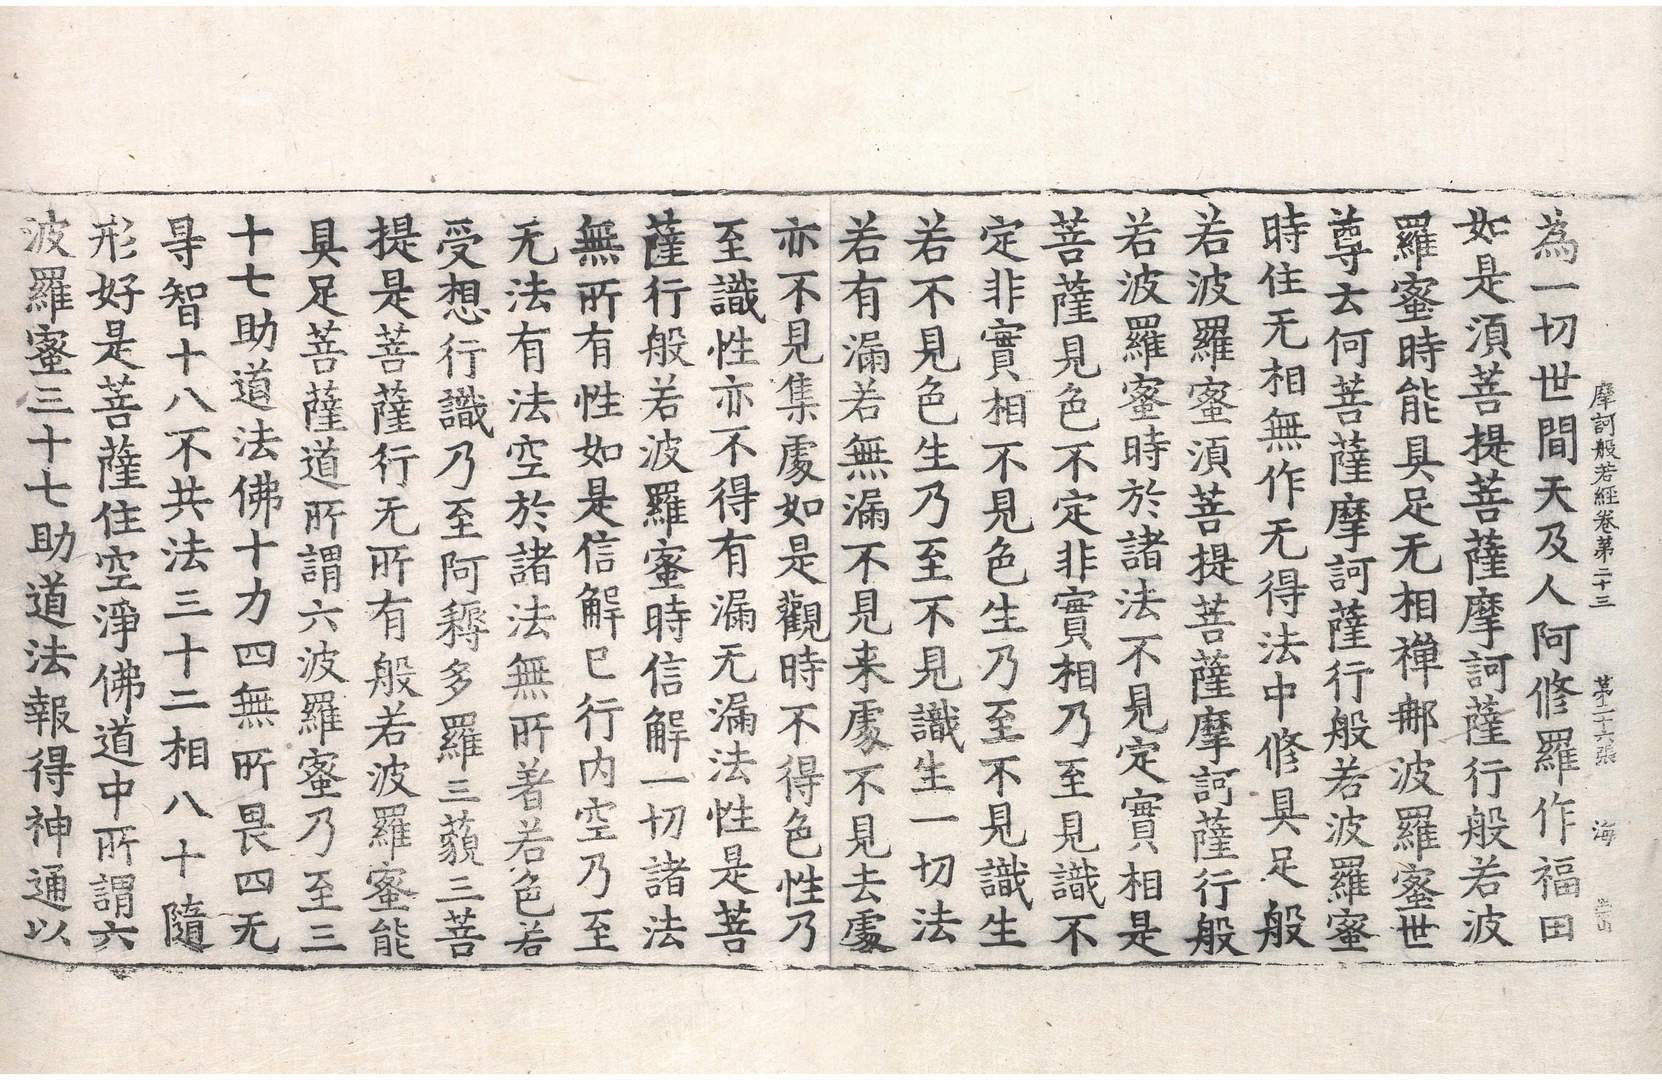 摩訶般若經卷第二十三 第二十六張 海
為一切世間天及人阿修羅作福田
如是湏菩提菩薩摩訶薩行般若波
羅蜜時能具足无相禅𨙻波羅蜜世
尊云何菩薩摩訶薩行般若波羅蜜
時住无相無作无得法中修具足般
若波羅蜜湏菩提菩薩摩訶薩行般
若波羅蜜時於諸法不見定實相是
菩薩見色不定非實相乃至見識不
定非實相不見色生乃至不見識生
若不見色生乃至不見識生一切法
若有漏若無漏不見来處不見去處
亦不見集處如是觀時不得色性乃
至識性亦不得有漏无漏法性是菩
薩行般若波羅蜜時信解一切諸法
無所有性如是信解已行内空乃至
无法有法空於諸法無所著若色若
受想行識乃至阿耨多羅三藐三菩
提是菩薩行无所有般若波羅蜜能
具足菩薩道所謂六波羅蜜乃至三
十七助道法佛十力四無所畏四无
㝵智十八不共法三十二相八十隨
形好是菩薩住空淨佛道中所謂六
波羅蜜三十七助道法報得神通以